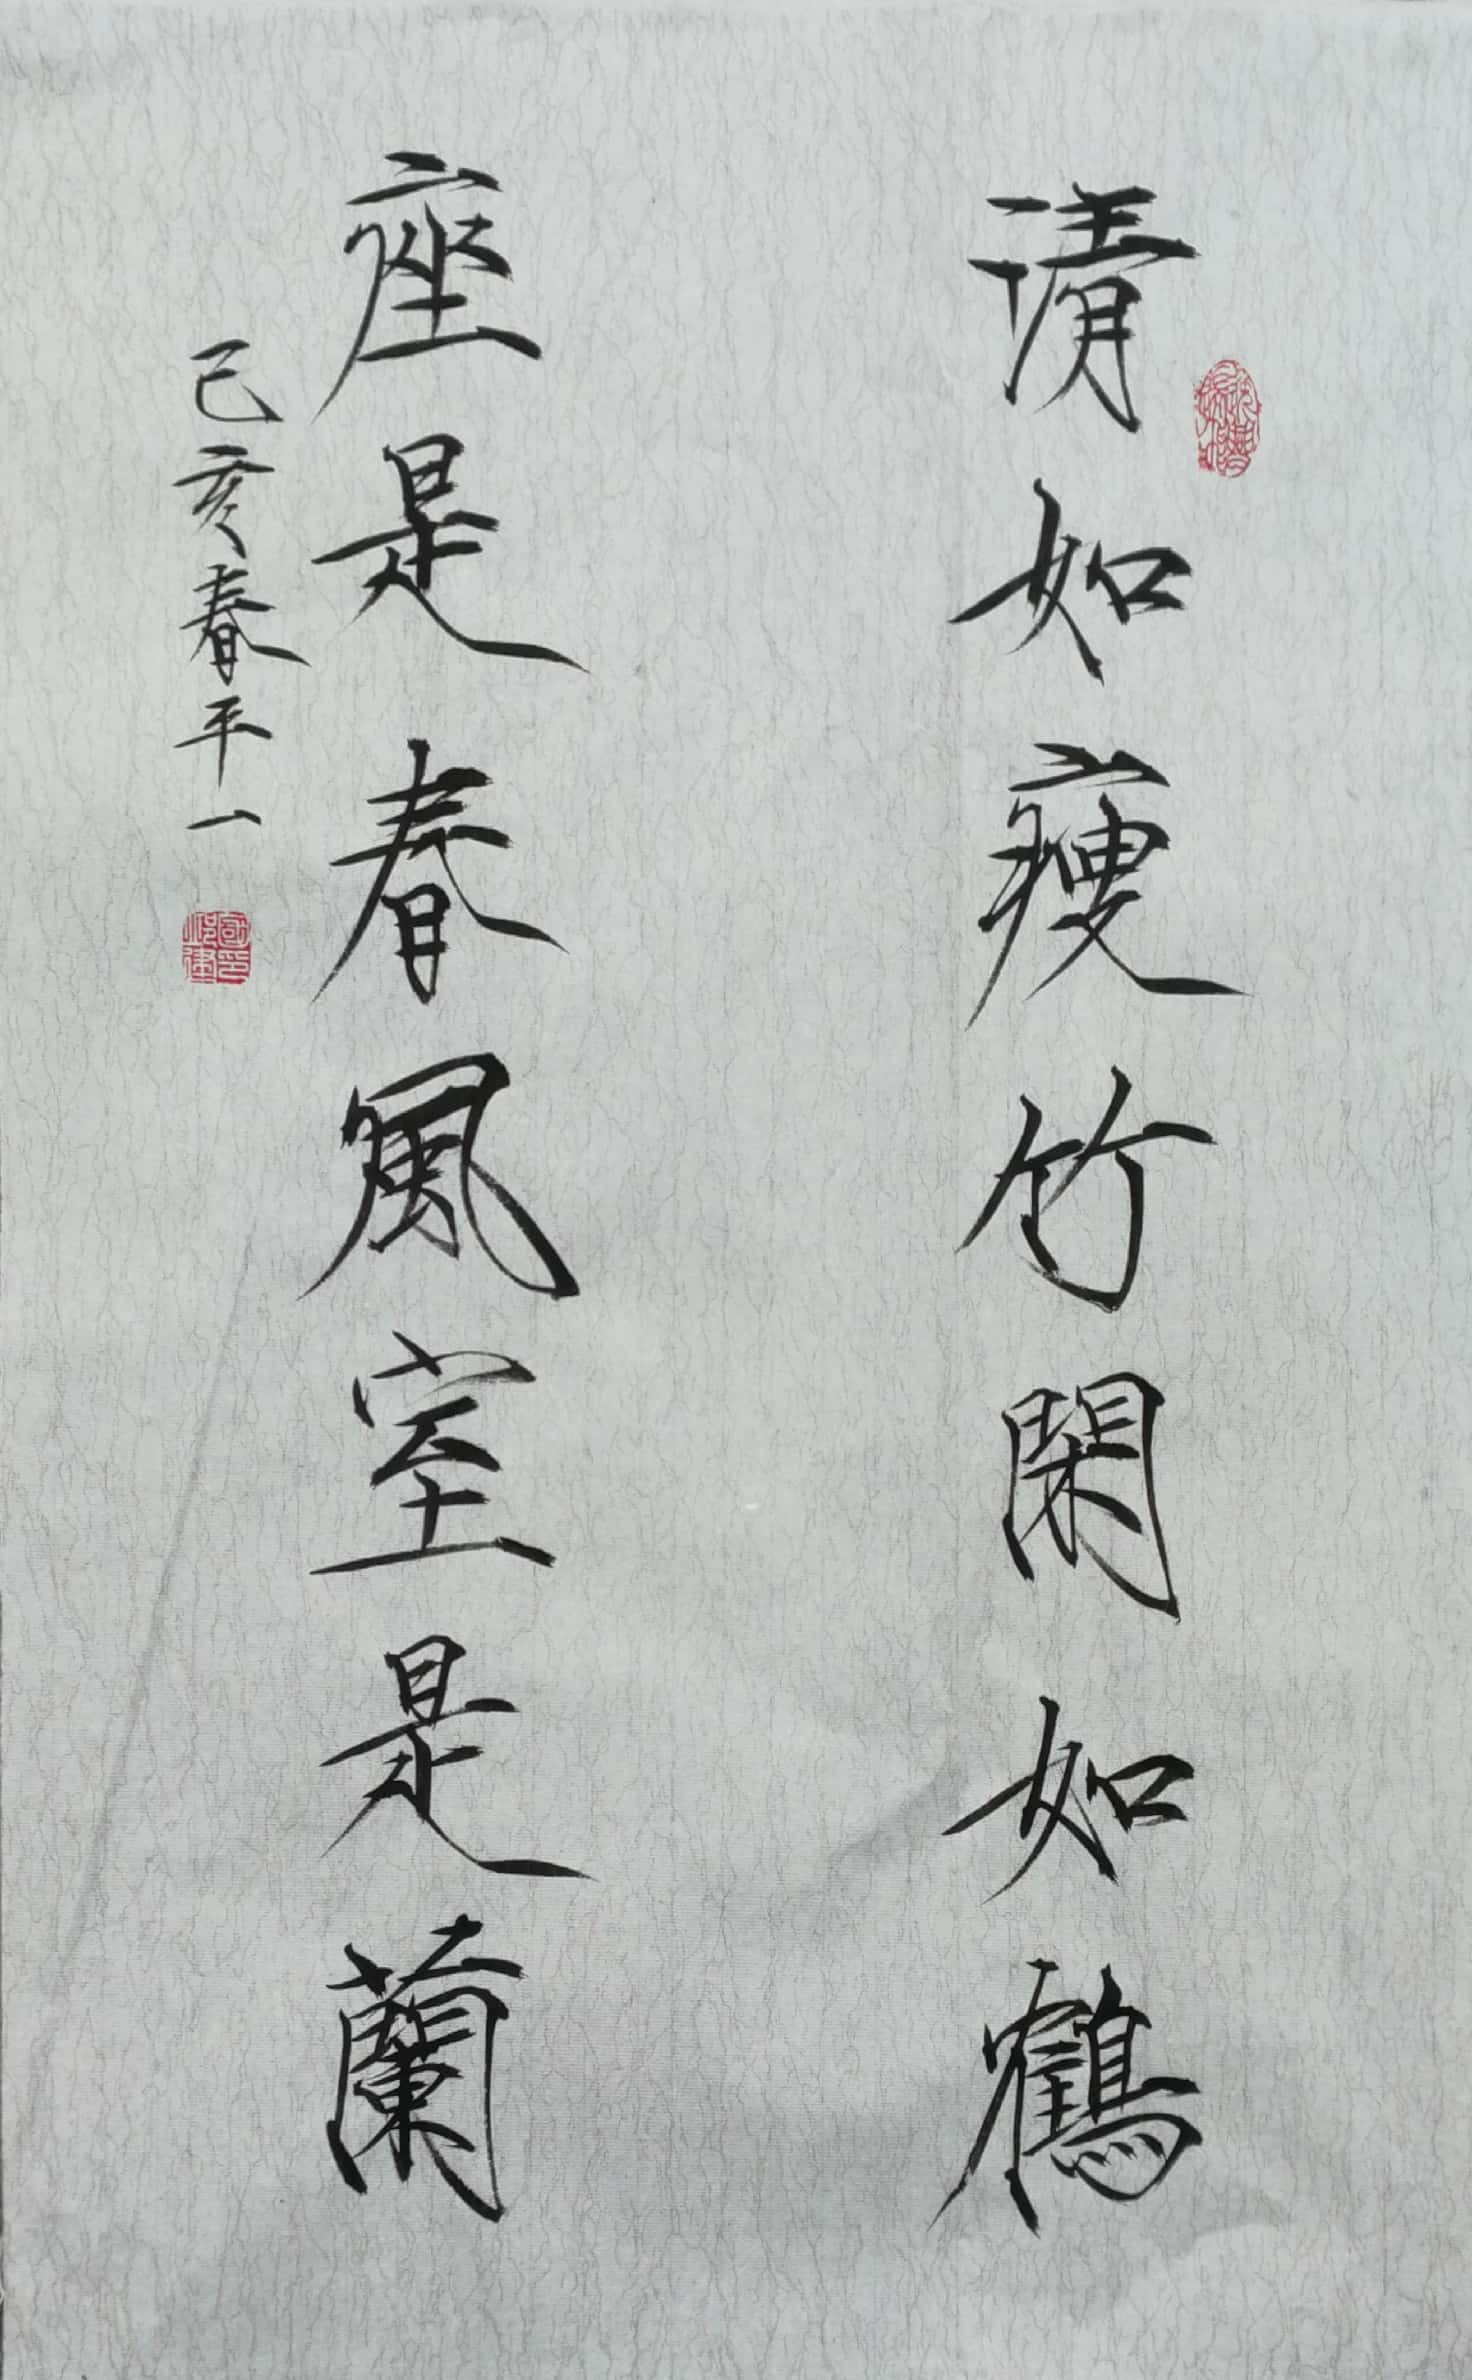 清如瘦竹閑如鶴
座是春風室是蘭
己亥春平一